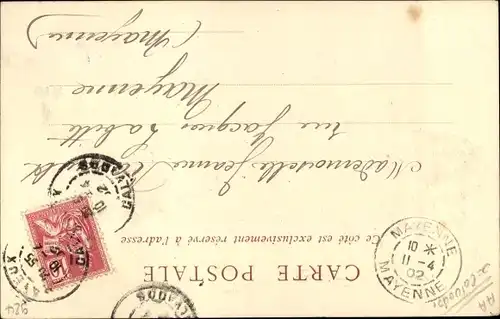 CARTE POSTALE
Ce côté est exclusivement réservé à l'adresse
Mademoiselle Jeanne
rue Jacques Labitte
Mayenne
(Mayenne)
MAYENNE
10 *
11-4
02
MAYENNE
CALVADOS
CALVADOS
984
AA